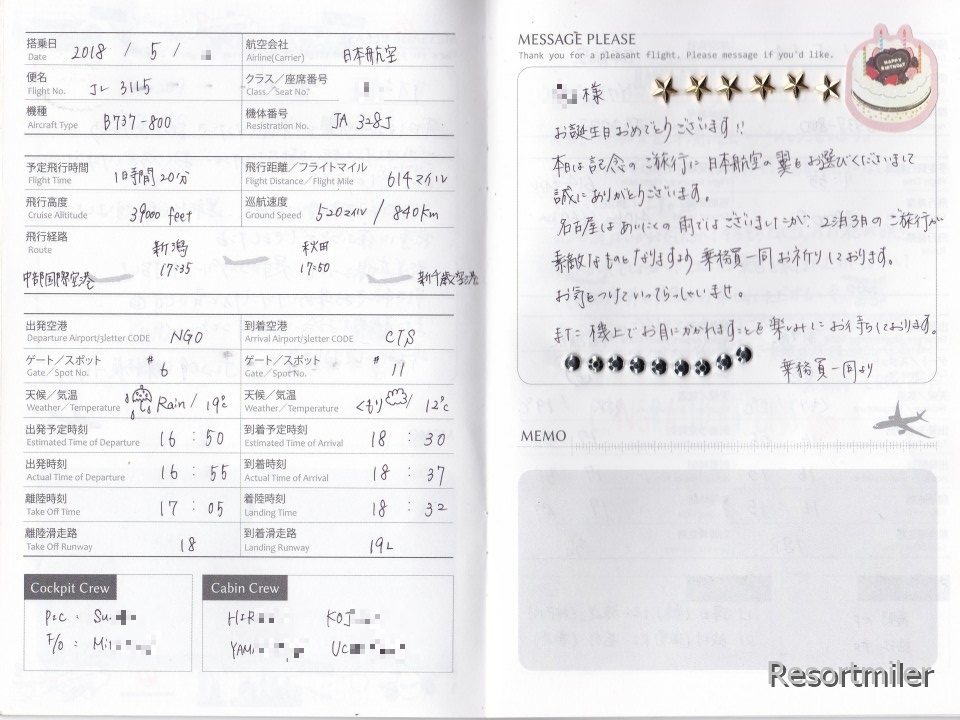 搭乗日 Date 2018 / 5 /
航空会社 Airline(Carrier) 日本航空
便名 Flight No. JL 3115
クラス/座席番号 Class/Seat No.
機種 Aircraft Type B737-800
機体番号 Resistration No. JA 328J
予定飛行時間 Flight Time 1日時間20分
飛行距離/フライトマイル Flight Distance/Flight Mile 614マイル
飛行高度 Cruise Alititude 39000 feet
巡航速度 Ground Speed 520マイル / 840Km
飛行経路 Route
新潟 秋田
17:35 17:50
中部国際空港 新千歳空港
出発空港 Departure Airport/3letter CODE NGO
到着空港 Arrival Airport/3letter CODE CTS
ゲート/スポット Gate/Spot No. # 6
ゲート/スポット Gate/Spot No. # 11
天候/気温 Weather/Temperature Rain / 19℃
天候/気温 Weather/Temperature くもり / 12℃
出発予定時刻 Estimated Time of Departure 16 : 50
到着予定時刻 Estimated Time of Arrival 18 : 30
出発時刻 Actual Time of Departure 16 : 55
到着時刻 Actual Time of Arrival 18 : 37
離陸時刻 Take Off Time 17 : 05
着陸時刻 Landing Time 18 : 32
離陸滑走路 Take Off Runway 18
到着滑走路 Landing Runway 19L
Cockpit Crew
PIC : Su
F/O : Mi
Cabin Crew
HIR KOJ
YAM UC
MESSAGE PLEASE
Thank you for a peasant flight. Please message if you'd like.
HAPPY BIRTHDAY
様
お誕生日おめでとうございます!!
本日は記念のご旅行に日本航空の翼をお選びくださいまして
誠にありがとうございます。
名古屋はあいにくの雨ではございましたが、2泊3日のご旅行が
素敵なものとなりますよう乗務員一同お祈りしております。
お気をつけていってらっしゃいませ。
また機上でお目にかかれますことを楽しみにお待ちしております。
乗務員一同より
MEMO
Resortmiler